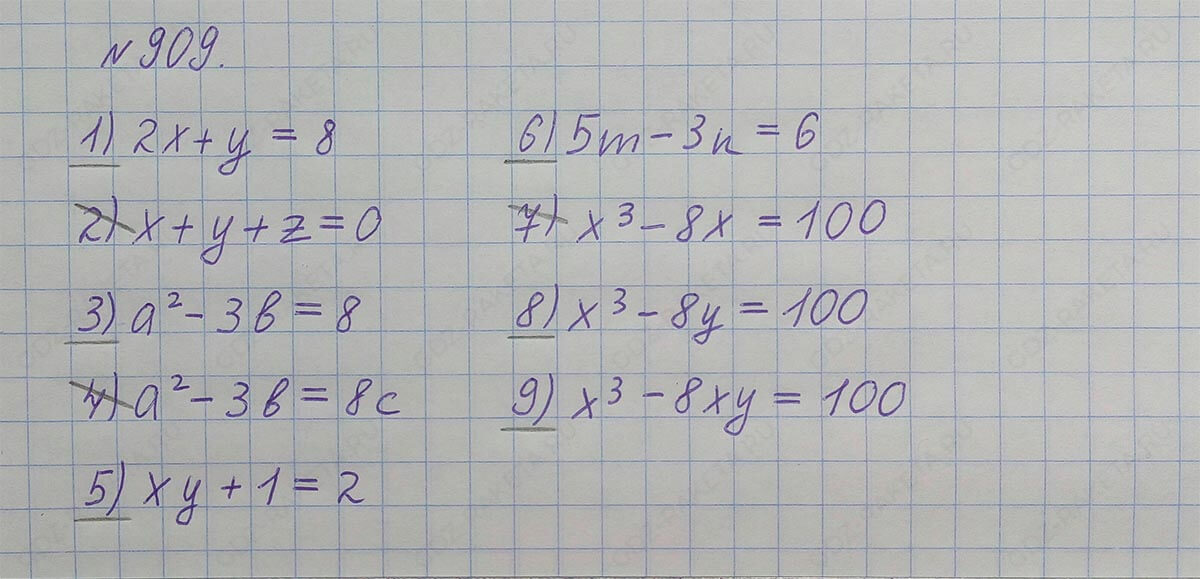 N 909.
1) 2x + y = 8
2) x + y + z = 0
3) a² - 3b = 8
4) a² - 3b = 8c
5) xy + 1 = 2
6) 5m - 3n = 6
7) x³ - 8x = 100
8) x³ - 8y = 100
9) x³ - 8xy = 100
GDZ-RAKETA.RU